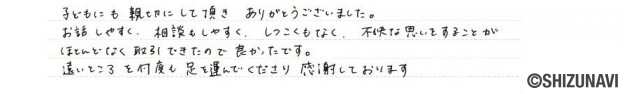 子どもにも 親切にして頂き ありがとうございました。
お話しやすく、相談もしやすく、しつこくもなく、不快な思いをすることが
ほとんどなく取引できたので良かったです。
遠いところを何度も足を運んでくださり 感謝しております
©SHIZUNAVI